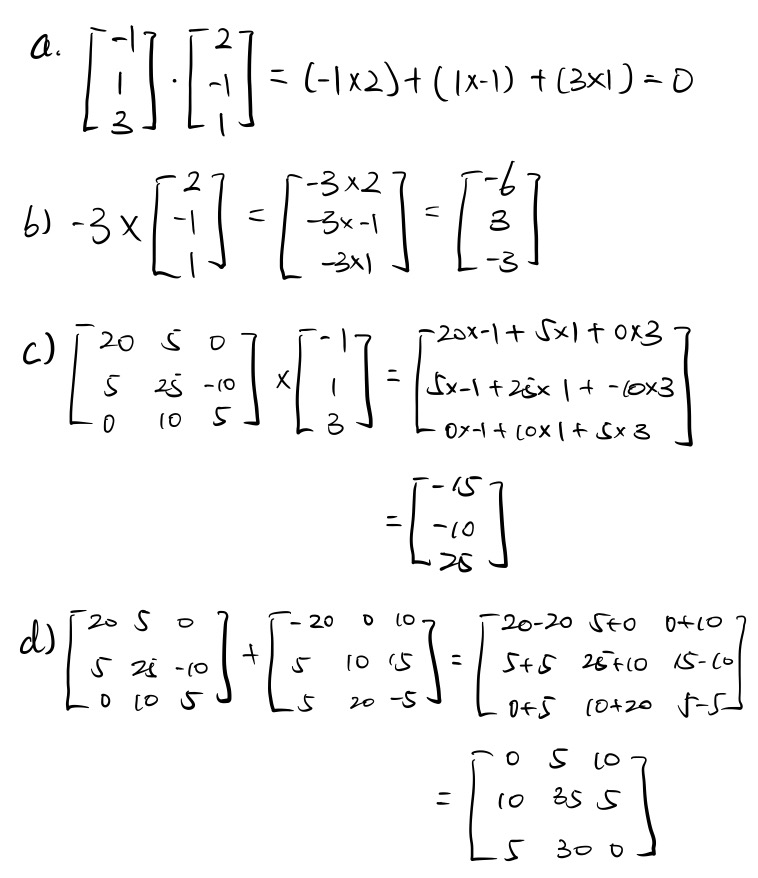 a. [-1 1 3] · [2 -1 1] = (-1x2)+(1x-1)+(3x1)=0
b) -3 x [2 -1 1] = [-3x2 -3x-1 -3x1] = [-6 3 -3]
c) [20 5 0; 5 25 -10; 0 10 5] x [-1 1 3] = [20x-1+5x1+0x3; 5x-1+25x1+-10x3; 0x-1+10x1+5x3]
= [-15 -10 25]
d) [20 5 0; 5 25 -10; 0 10 5] + [-20 0 10; 5 10 15; 5 20 -5] = [20-20 5+0 0+10; 5+5 25+10 15-10; 0+5 10+20 5-5]
= [0 5 10; 10 35 5; 5 30 0]